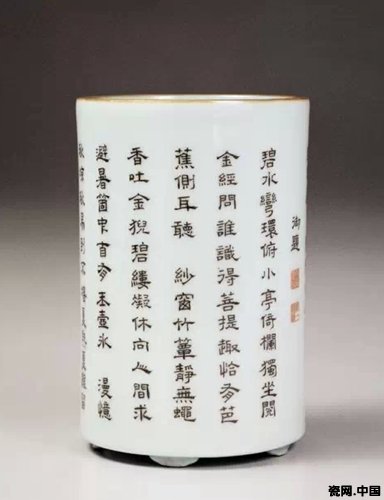 御題
碧水彎環俯小亭倚欄獨坐閱
金經問誰識得菩提趣恰有芭
蕉側耳聽 紗窗竹簟靜無蠅
香吐金猊碧縷凝休向人間求
避暑箇中自有玉壺冰 漫憶
瓷网.中国